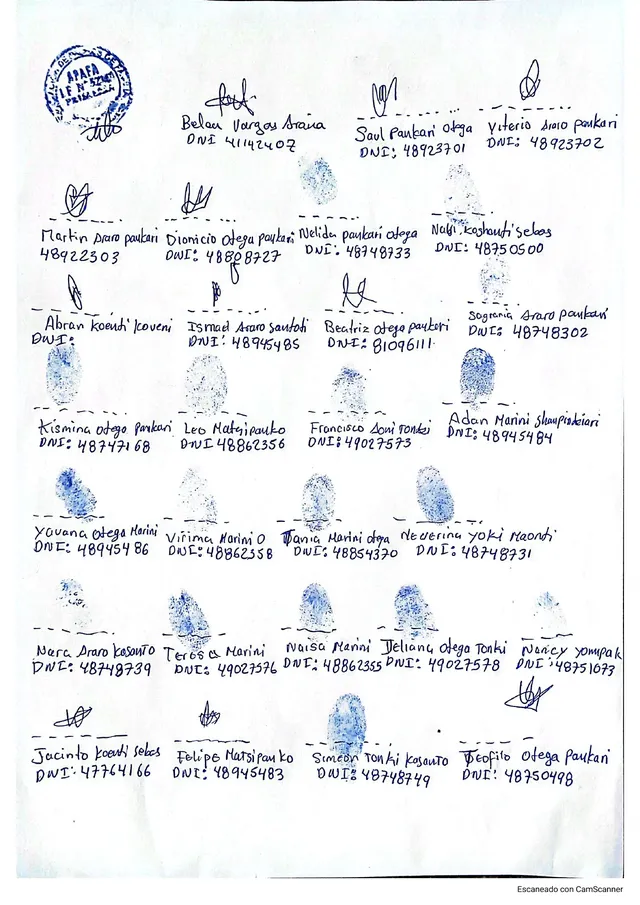 APAFA
Belan Vargas Araña
DNI 41142407
Saul Paukari Otega
DNI: 48923701
Viterio Araro paukari
DNI: 48923702
Martin Araro paukari
48922303
Dionicio Otega paukari
DNI: 48808727
Nelida paukari otega
DNI: 48748733
Koshanti sebas
DNI: 48750500
Abran Koenti Koveni
DNI:
Ismael Araro santoti
DNI: 48945485
Beatriz otega paukari
DNI: 81096111
Araro paukari
DNI: 48748302
Kismina otega paukari
DNI: 48747168
Leo Matsipauko
DNI 48862356
Francisco Soni Tonki
DNI: 49027573
Adan Marini
DNI: 48945484
Yovana otega Marini
DNI: 48945486
Virima Marini O
DNI: 48862358
Tania Marini otega
DNI: 48854370
Neverina Yoki Maonti
DNI: 48748731
Nara Araro Kasanto
DNI: 48748739
Teresa Marini
DNI: 49027576
Naisa Marini
DNI: 48862355
Jeliana Otega Tonki
DNI: 49027578
Nancy
DNI: 48751073
Jacinto Koenti sebas
DNI: 47764166
Felipe Matsipauko
DNI: 48945483
Simeon Tonki Kosanto
DNI: 48748749
Teofilo Otega paukari
DNI: 48750498
Escaneado con CamScanner